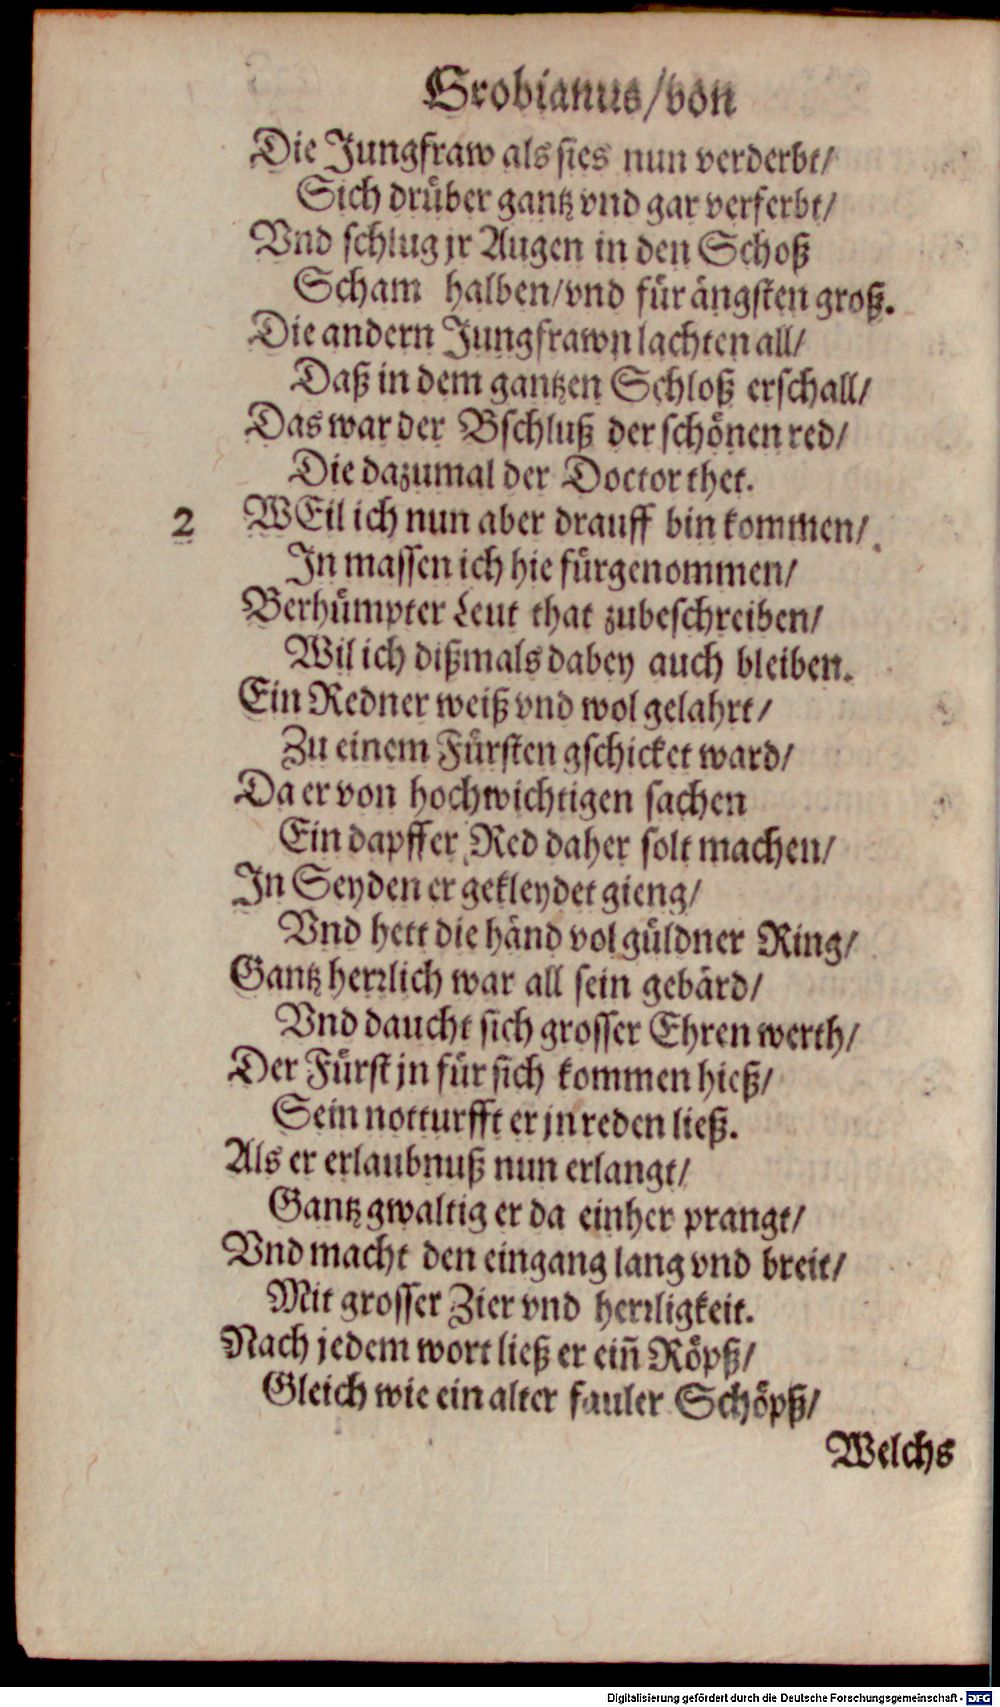 Grobianus/von
Die Jungfraw als sies nun verderbt/
Sich drüber gantz vnd gar verferbt/
Vnd schlug jr Augen in den Schoß
Scham halben/vnd für ängsten groß.
Die andern Jungfrawn lachten all/
Daß in dem gantzen Schloß erschall/
Das war der Bschluß der schönen red/
Die dazumal der Doctor thet.
2 WEil ich nun aber drauff bin kommen/
In massen ich hie fürgenommen/
Berhümpter Leut that zubeschreiben/
Wil ich dißmals dabey auch bleiben.
Ein Redner weiß vnd wol gelahrt/
Zu einem Fürsten gschicket ward/
Da er von hochwichtigen sachen
Ein dapffer Red daher solt machen/
In Seyden er gekleydet gieng/
Vnd hett die händ vol güldner Ring/
Gantz herrlich war all sein gebärd/
Vnd daucht sich grosser Ehren werth/
Der Fürst jn für sich kommen hieß/
Sein notturfft er jn reden ließ.
Als er erlaubnuß nun erlangt/
Gantz gwaltig er da einher prangt/
Vnd macht den eingang lang vnd breit/
Mit grosser Zier vnd herrligkeit.
Nach jedem wort ließ er eiñ Röpß/
Gleich wie ein alter fauler Schöpß/
Welchs
Digitalisierung gefördert durch die Deutsche Forschungsgemeinschaft - DFG